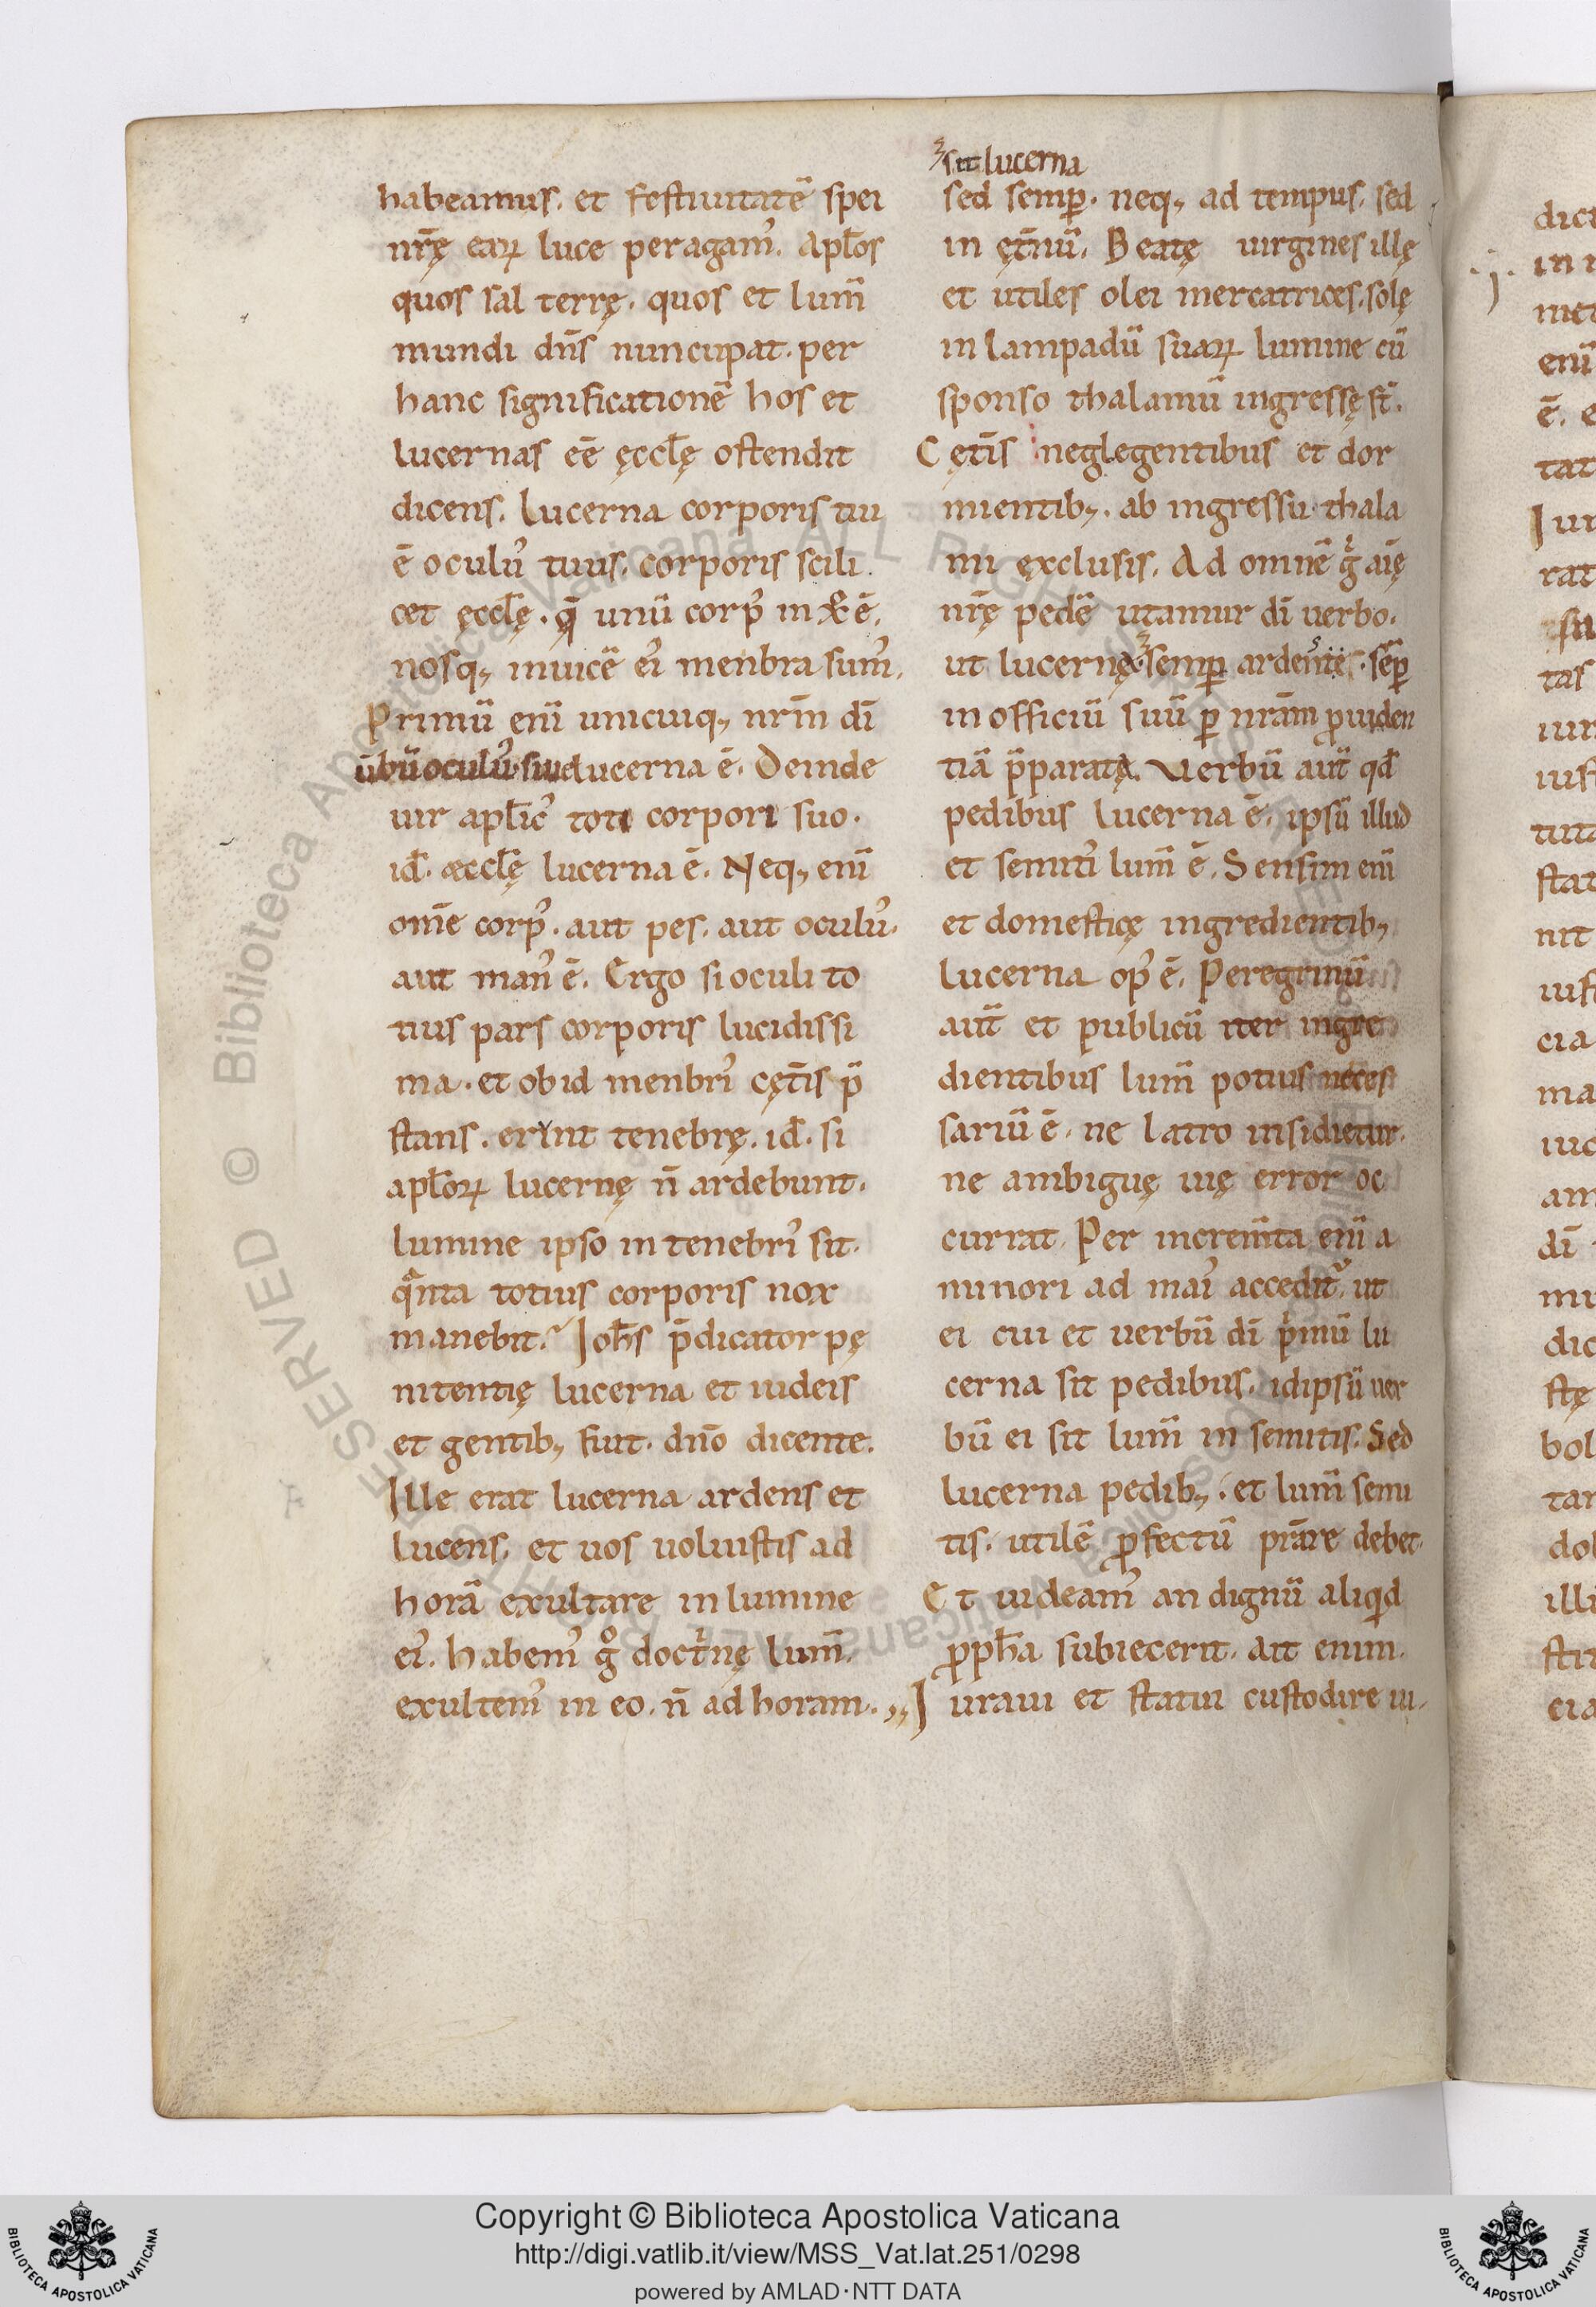 habeamus. et festiuitatē spei
nr̄ę earꝝ luce peragam᾿. Apl̄os
quos sal terrę. quos et lum̄
mundi dn̄s nuncupat. per
hanc significationē hos et
lucernas eē ęccl̄ę ostendit
dicens. Lucerna corporis tui
ē oculu᾿ tuus. corporis scili
cet ęccl̄ę. q̄ unū corp᾿ in xp̄ ē.
nosq; inuicē ei᾿ menbra sum᾿.
Primū enī unicuiq; nrm̄ dī
ūbū oculu᾿ siue lucerna ē. Deinde
uir apl̄ic᾿ toti corpori suo.
id̄. æccl̄ę lucerna ē. Neq; enī
om̄e corp᾿. aut pes. aut oculu᾿.
aut man᾿ ē. Ergo si oculi to
tius pars corporis lucidissi
ma. et ob id menbri᾿ cęt̄is p̄
stans. erint tenebrę. id̄. si
apl̄orꝝ lucernę n̄ ardebunt.
lumine ipso in tenebri᾿ sit.
qᷓnta totius corporis nox
manebit? Ioh̄s p̄dicator pę
nitentię lucerna et iudeis
et gentib; fuit. dn̄o dicente.
Ille erat lucerna ardens et
lucens. et uos uoluistis ad
horā exultare in lumine
ei᾿. habem᾿ gͦ doctⁱnę lum̄.
exultem᾿ in eo. n̄ ad horam.
sit lucerna
sed semꝑ. neq; ad tempus. sed
in ęt̄nū. Beatę uirgines illę
et utiles olei mercatrices. solę
in lampadū suarꝝ lumine cū
sponso thalamū ingressę st̄.
Cęt̄is neglegentibus et dor
mientib;. ab ingressu thala
mi exclusis. Ad omnē gⁱ aīę
nr̄ę pedē utamur dī uerbo.
ut lucernę semꝑ ardentes. sēꝑ
in officiū suū ꝑ nrām ꝓuiden
tiā p̄paratę. Verbū aut̄ qd̄
pedibus lucerna ē. ipsū illud
et semiti᾿ lum̄ ē. Sensim enī
et domesticę ingredientib;
lucerna op᾿ ē. Peregrinū
aut̄ et publicū iter ingre
dientibus lum̄ potius neces
sariū ē. ne latro insidietur.
ne ambiguę uię error oc
currat. Per increm̄ta enī a
minori ad mai᾿ accedit᾿. ut
ei cui et uerbū dī pⁱmū lu
cerna sit pedibus. idipsū uer
bū ei sit lum̄ in semitis. Sed
lucerna pedib;. et lum̄ semi
tis. utilē ꝓfectū prāre debet.
Et uideam᾿ an dignū aliqⁱd
ꝓph̄a subiecerit. Ait enim.
Iuraui et statui custodire iu-
Copyright © Biblioteca Apostolica Vaticana
http://digi.vatlib.it/view/MSS_Vat.lat.251/0298
powered by AMLAD·NTT DATA